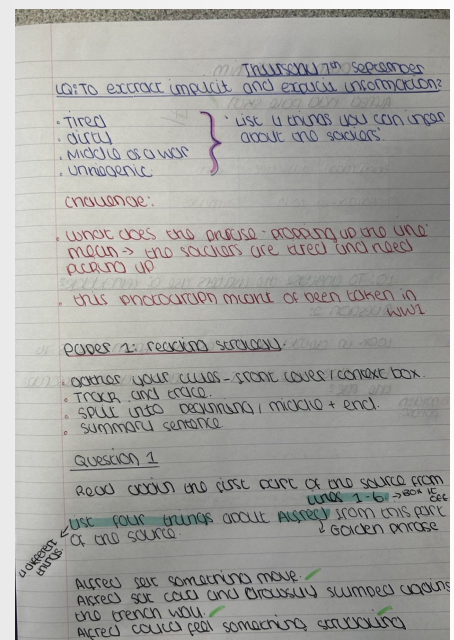 Thursday 7th september
LQ: To extract implicit and explicit information?
. Tired
. dirty
. Middle of a war
. unhegenic
· List 4 things you can infer
about the soldiers'
challenge:
. what does the phrase 'propping up the line'
mean → the soldiers are tired and need
picking up
. this photograph might of been taken in
WW1
paper 1: reading strategy.
. gather your clues - front cover / context box.
. Track and trace.
. split into beginning / middle + end.
. summary sentence.
Question 1
Read again the first part of the source from
lines 1-6. → BOX IT OFF
List four things about Alfred from this part
of the source.
↳ Golden phrase
4 different things.
Alfred felt something move. ✓
Alfred felt cold and drowsily slumped against
the trench wall. ✓
Alfred could feel something scrabbling